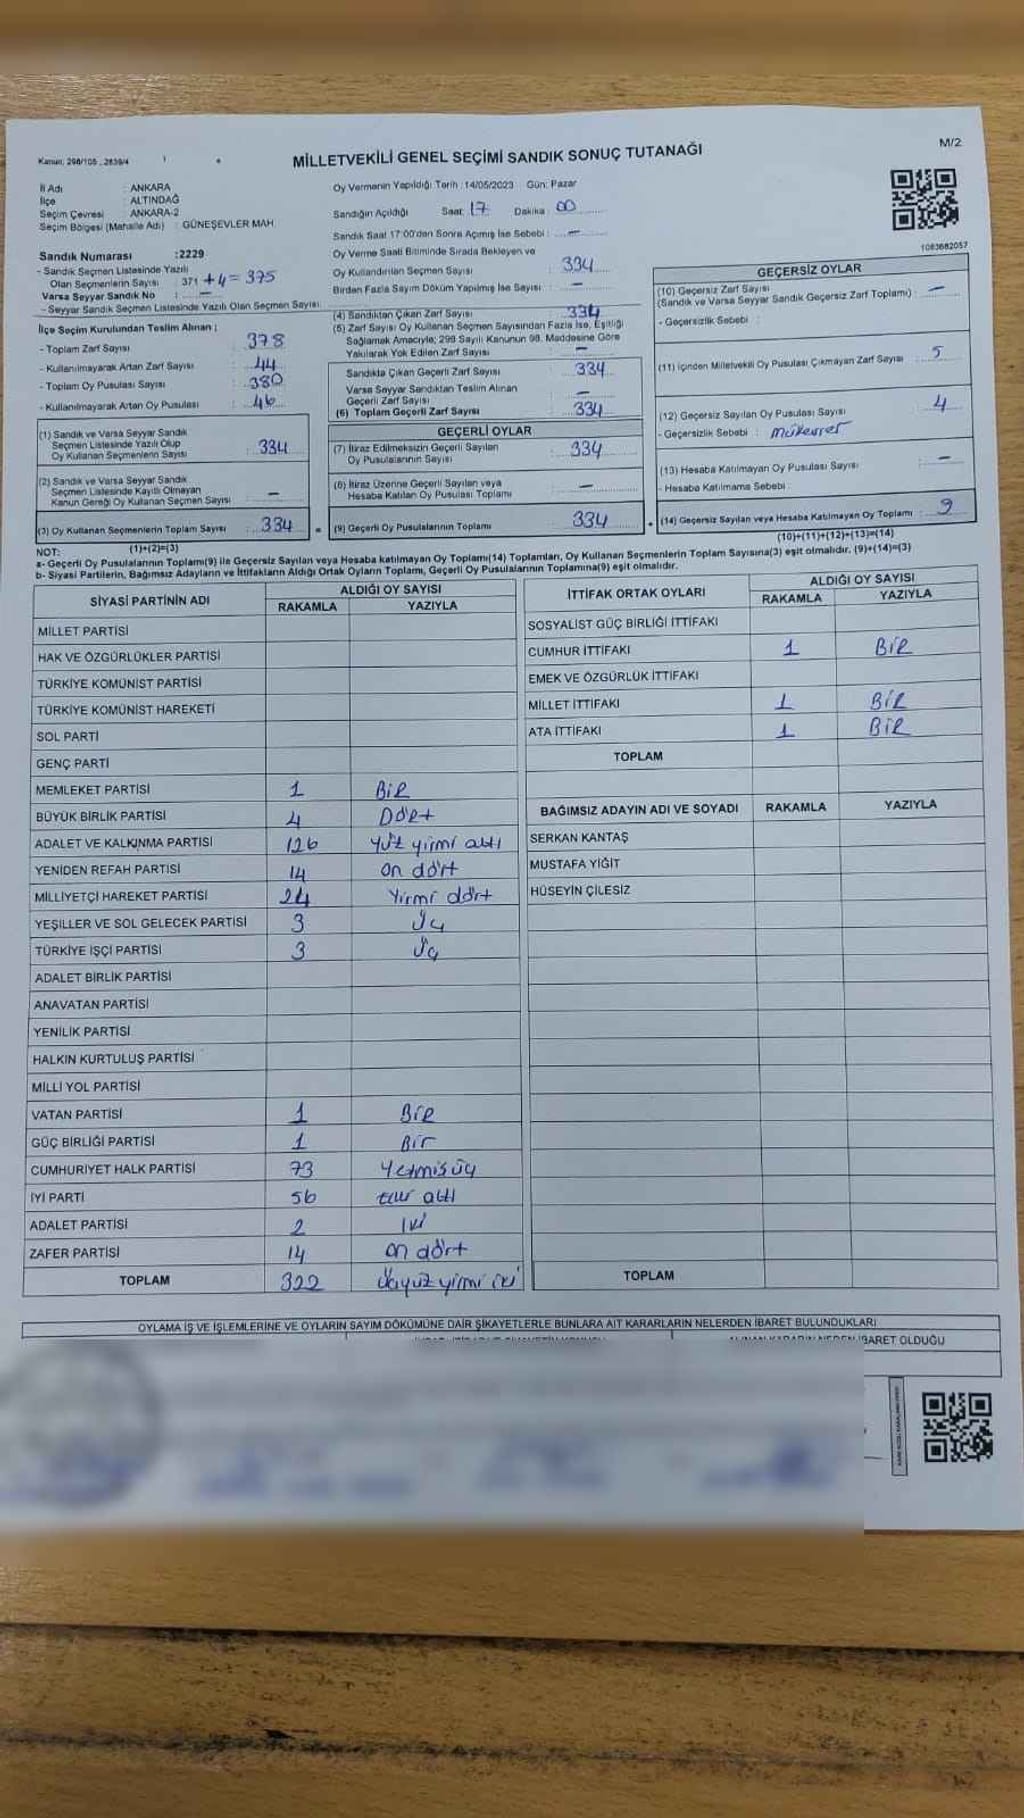 Kanun: 298/105 , 2839/4
M/2
MİLLETVEKİLİ GENEL SEÇİMİ SANDIK SONUÇ TUTANAĞI
İl Adı : ANKARA
İlçe : ALTINDAĞ
Seçim Çevresi : ANKARA-2
Seçim Bölgesi (Mahalle Adı) : GÜNEŞEVLER MAH.
Sandık Numarası :2229
- Sandık Seçmen Listesinde Yazılı
Olan Seçmenlerin Sayısı : 371 +4= 375
Varsa Seyyar Sandık No : —
- Seyyar Sandık Seçmen Listesinde Yazılı Olan Seçmen Sayısı:
Oy Vermenin Yapıldığı: Tarih :14/05/2023 Gün: Pazar
Sandığın Açıldığı Saat: 17 Dakika : 00
Sandık Saat 17:00'dan Sonra Açılmış İse Sebebi : —
Oy Verme Saati Bitiminde Sırada Bekleyen ve
Oy Kullandırılan Seçmen Sayısı : 334
Birden Fazla Sayım Döküm Yapılmış İse Sayısı : —
1083682057
İlçe Seçim Kurulundan Teslim Alınan :
- Toplam Zarf Sayısı : 378
- Kullanılmayarak Artan Zarf Sayısı : 44
- Toplam Oy Pusulası Sayısı : 380
- Kullanılmayarak Artan Oy Pusulası : 46
(1) Sandık ve Varsa Seyyar Sandık
Seçmen Listesinde Yazılı Olup
Oy Kullanan Seçmenlerin Sayısı : 334
(2) Sandık ve Varsa Seyyar Sandık
Seçmen Listesinde Kayıtlı Olmayan
Kanun Gereği Oy Kullanan Seçmen Sayısı : —
(3) Oy Kullanan Seçmenlerin Toplam Sayısı : 334
(1)+(2)=(3)
(4) Sandıktan Çıkan Zarf Sayısı : 334
(5) Zarf Sayısı Oy Kullanan Seçmen Sayısından Fazla İse, Eşitliği
Sağlamak Amacıyle; 298 Sayılı Kanunun 98. Maddesine Göre
Yakılarak Yok Edilen Zarf Sayısı : —
Sandıkta Çıkan Geçerli Zarf Sayısı : 334
Varsa Seyyar Sandıktan Teslim Alınan
Geçerli Zarf Sayısı : —
(6) Toplam Geçerli Zarf Sayısı : 334
GEÇERLİ OYLAR
(7) İtiraz Edilmeksizin Geçerli Sayılan
Oy Pusulalarının Sayısı : 334
(8) İtiraz Üzerine Geçerli Sayılan veya
Hesaba Katılan Oy Pusulası Toplamı : —
(9) Geçerli Oy Pusulalarının Toplamı : 334
GEÇERSİZ OYLAR
(10) Geçersiz Zarf Sayısı
(Sandık ve Varsa Seyyar Sandık Geçersiz Zarf Toplamı) : —
- Geçersizlik Sebebi :
(11) İçinden Milletvekili Oy Pusulası Çıkmayan Zarf Sayısı : 5
(12) Geçersiz Sayılan Oy Pusulası Sayısı : 4
- Geçersizlik Sebebi : Mükerrer
(13) Hesaba Katılmayan Oy Pusulası Sayısı : —
- Hesaba Katılmama Sebebi :
(14) Geçersiz Sayılan veya Hesaba Katılmayan Oy Toplamı : 9
(10)+(11)+(12)+(13)=(14)
NOT:
a- Geçerli Oy Pusulalarının Toplamı(9) ile Geçersiz Sayılan veya Hesaba katılmayan Oy Toplamı(14) Toplamları, Oy Kullanan Seçmenlerin Toplam Sayısına(3) eşit olmalıdır. (9)+(14)=(3)
b- Siyasi Partilerin, Bağımsız Adayların ve İttifakların Aldığı Ortak Oyların Toplamı, Geçerli Oy Pusulalarının Toplamına(9) eşit olmalıdır.
SİYASİ PARTİNİN ADI ALDIĞI OY SAYISI
RAKAMLA YAZIYLA
MİLLET PARTİSİ
HAK VE ÖZGÜRLÜKLER PARTİSİ
TÜRKİYE KOMÜNİST PARTİSİ
TÜRKİYE KOMÜNİST HAREKETİ
SOL PARTİ
GENÇ PARTİ
MEMLEKET PARTİSİ 1 BİR
BÜYÜK BİRLİK PARTİSİ 4 Dört
ADALET VE KALKINMA PARTİSİ 126 Yüz yirmi altı
YENİDEN REFAH PARTİSİ 14 on dört
MİLLİYETÇİ HAREKET PARTİSİ 24 Yirmi dört
YEŞİLLER VE SOL GELECEK PARTİSİ 3 Üç
TÜRKİYE İŞÇİ PARTİSİ 3 Üç
ADALET BİRLİK PARTİSİ
ANAVATAN PARTİSİ
YENİLİK PARTİSİ
HALKIN KURTULUŞ PARTİSİ
MİLLİ YOL PARTİSİ
VATAN PARTİSİ 1 BİR
GÜÇ BİRLİĞİ PARTİSİ 1 Bir
CUMHURİYET HALK PARTİSİ 73 Yetmiş üç
İYİ PARTİ 56 altı
ADALET PARTİSİ 2 İki
ZAFER PARTİSİ 14 on dört
TOPLAM 322 Üçyüz yirmi iki
İTTİFAK ORTAK OYLARI ALDIĞI OY SAYISI
RAKAMLA YAZIYLA
SOSYALİST GÜÇ BİRLİĞİ İTTİFAKI
CUMHUR İTTİFAKI 1 BİR
EMEK VE ÖZGÜRLÜK İTTİFAKI
MİLLET İTTİFAKI 1 BİR
ATA İTTİFAKI 1 BİR
TOPLAM
BAĞIMSIZ ADAYIN ADI VE SOYADI RAKAMLA YAZIYLA
SERKAN KANTAŞ
MUSTAFA YİĞİT
HÜSEYİN ÇİLESİZ
TOPLAM
OYLAMA İŞ VE İŞLEMLERİNE VE OYLARIN SAYIM DÖKÜMÜNE DAİR ŞİKAYETLERLE BUNLARA AİT KARARLARIN NELERDEN İBARET BULUNDUKLARI
İBARET OLDUĞU